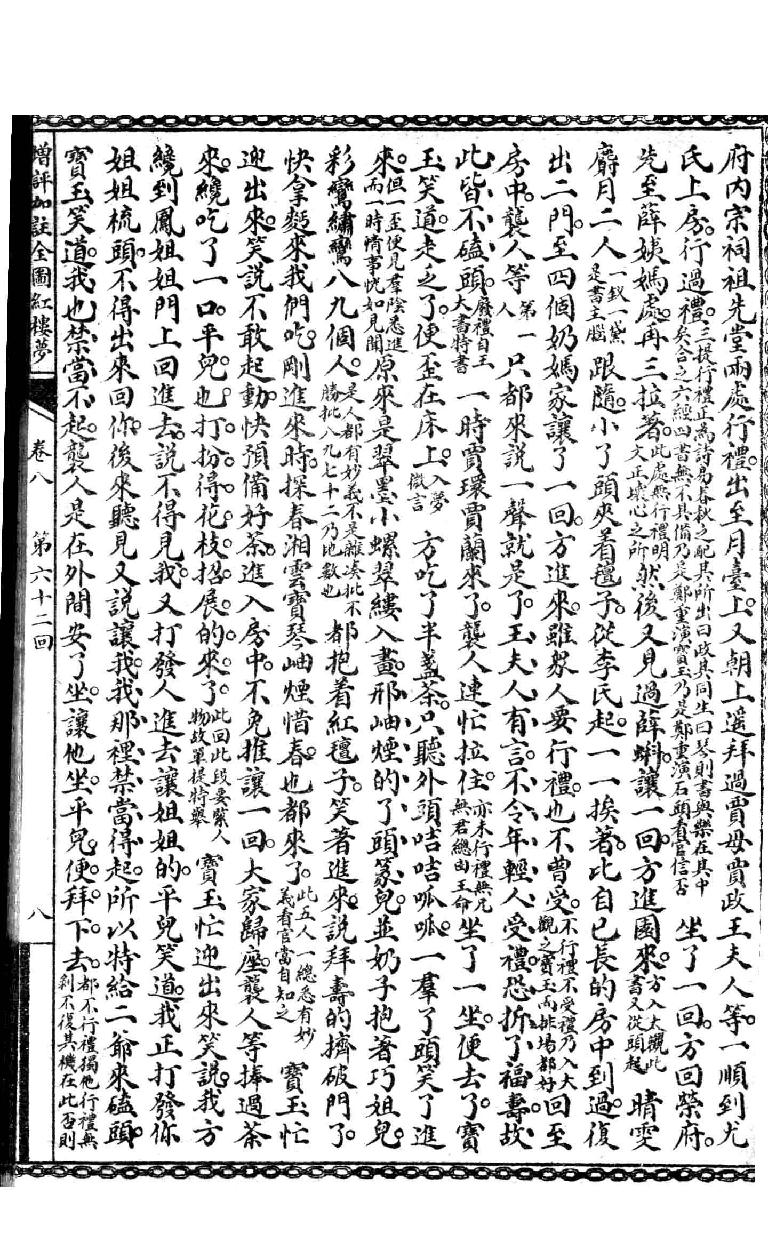 府內宗祠祖先堂兩處行禮。出至月臺上。又朝上遥拜過賈母賈政王夫人等。一順到尤
氏上房。行過禮。三提行禮正為詩易春秋之配其所出曰政其同坐曰琴則書與樂在其中矣合之六經四書無不具備乃是鄭重演寶玉乃是鄭重演石頭看官信否坐了一回。方回榮府。
先至薛姨媽處。再三拉著。此處無行禮明文正壞心之所然後又見過薛蝌。讓一回。方進園來。方入大觀此書又從頭起晴雯
麝月二人一釵一黛是書主腦跟隨。小丫頭夾着氊子。從李氏起。一一挨著。比自己長的房中到過。復
出二門。至四個奶媽家讓了一回。方進來。雖眾人要行禮。也不曾受。不行禮不受禮乃入大觀之寶玉而排場都好回至
房中。襲人等第一人只都來說一聲就是了。王夫人有言。不令年輕人受禮。恐折了福壽。故
此皆不磕頭。廢禮自王大書特書一時賈環賈蘭來了。襲人連忙拉住。亦未行禮無凡無君總由王命坐了一坐。便去了。寶
玉笑道。走乏了。便歪在床上。入夢微言方吃了半盞茶。只聽外頭咭咭呱呱。一羣丫頭笑了進
來。但一至便見羣陰悉進而一時情事恍如見聞原來是翠墨小螺翠縷入畫。邢岫煙的丫頭篆兒。並奶子抱著巧姐兒
彩鸞繡鸞八九個人。是人都有妙義不是雜湊批不勝批八九七十二乃地數也都抱着紅氊子。笑著進來。說拜壽的擠破門了。
快拿麪來我們吃。剛進來時。探春湘雲寶琴岫煙惜春也都來了。此五人一總悉有妙義看官當自知之寶玉忙
迎出來。笑說不敢起動。快預備好茶。進入房中。不免推讓一回。大家歸座。襲人等捧過茶
來。纔吃了一口。平兒也打扮得花枝招展的來了。此回此段要緊人物故單提特舉寶玉忙迎出來笑說。我方
纔到鳳姐姐門上回進去。說不得見。我又打發人進去讓姐姐的。平兒笑道。我正打發你
姐姐梳頭。不得出來回你。後來聽見又說讓我。我那裡禁當得起。所以特給二爺來磕頭。
寶玉笑道。我也禁當不起。襲人是在外間安了坐。讓他坐。平兒便拜下去。都不行禮獨他行禮無剝不復其機在此否則
增評加註全圖紅樓夢 卷八 第六十二回 八